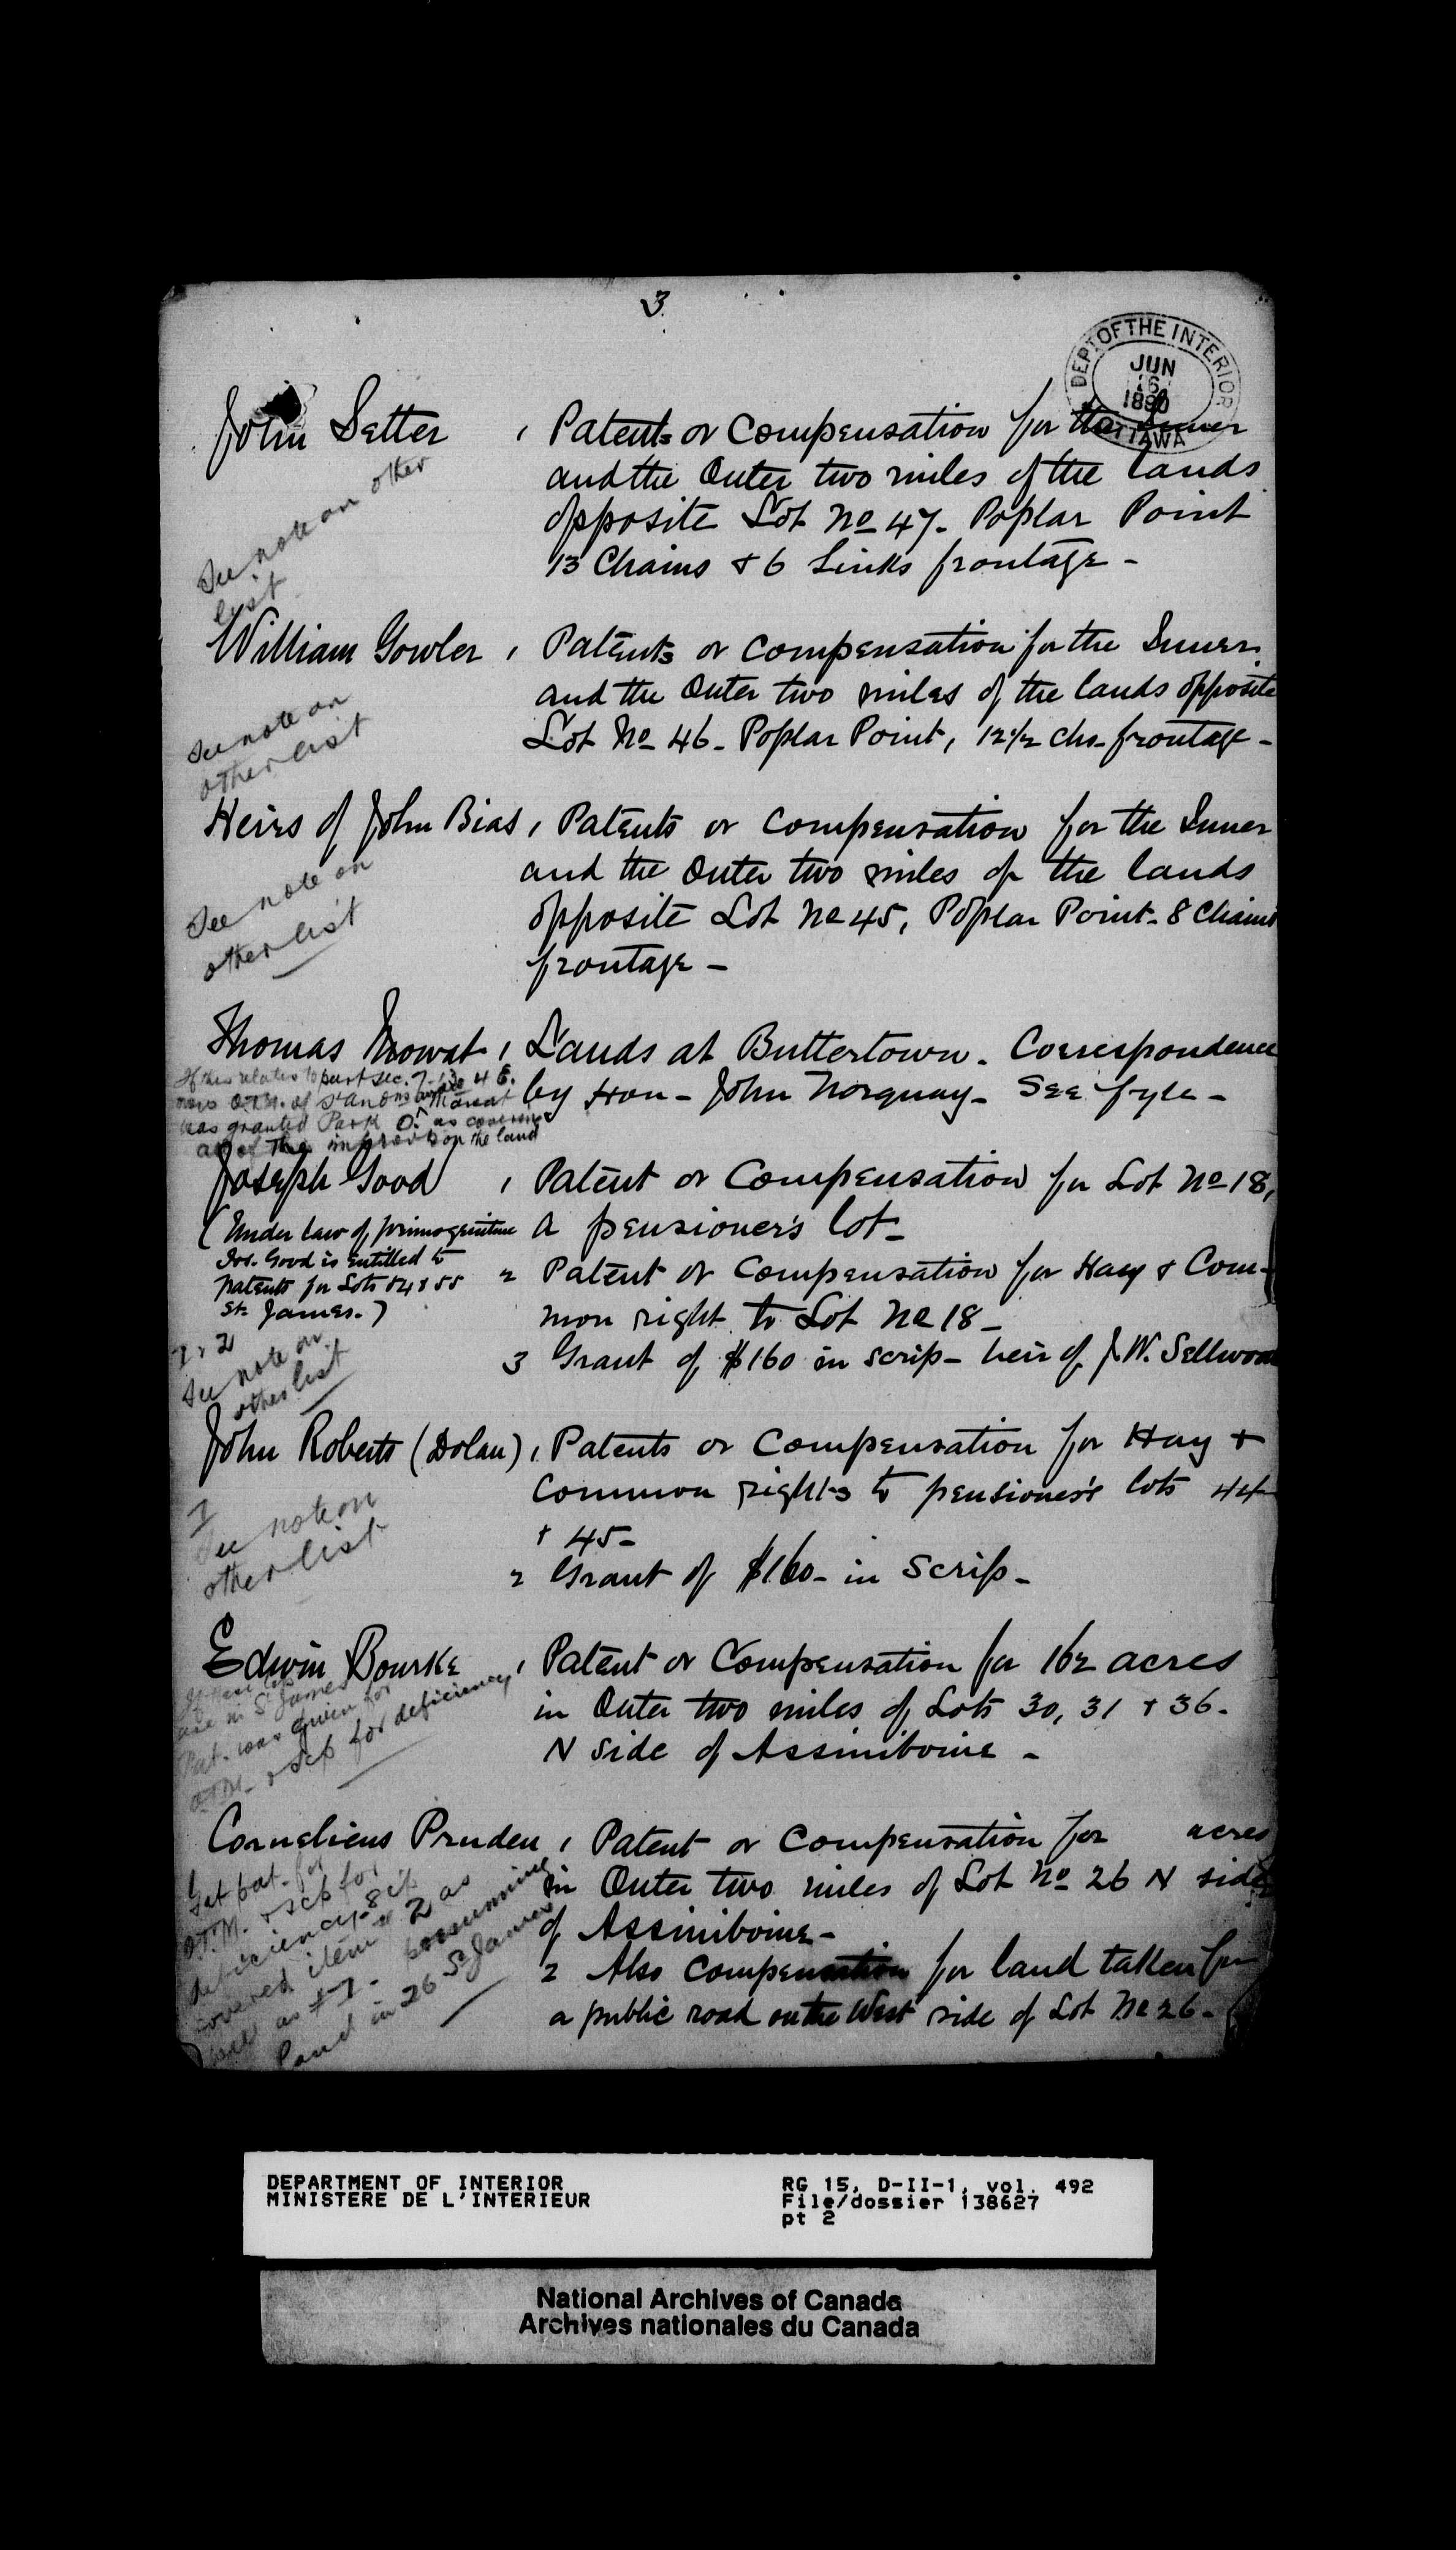 3
DEPT OF THE INTERIOR
JUN
16
1890
OTTAWA
John Setter 1 Patents or Compensation for the Inner
and the Outer two miles of the lands
opposite Lot No 47. Poplar Point
13 Chains & 6 Links frontage -
See note on other
list
William Gowler 1 Patents or Compensation for the Inner
and the Outer two miles of the lands opposite
Lot No 46. Poplar Point, 12½ chs. frontage -
See note on
other list
Heirs of John Bias 1 Patents or Compensation for the Inner
and the Outer two miles of the lands
opposite Lot No 45, Poplar Point. 8 Chains
frontage -
See note on
other list
Thomas Mowat 1 Lands at Buttertown. Correspondence
by Hon. John Norquay. See fyle -
If this relates to part sec. 7
O.T.M. of St And
was granted Park O. as covering
all of the improvts on the land
Joseph Good 1 Patent or Compensation for Lot No 18,
a pensioner's lot -
(Under Law of primogeniture
Jos. Good is entitled to
patents for Lots 54 & 55
St. James.)
2 Patent or Compensation for Hay & Com-
mon right to Lot No 18 -
3 Grant of $160 in scrip - heir of J.W. Sellwood
1 & 2
See note on
other list
John Roberts (Dolan) 1 Patents or Compensation for Hay &
Common rights to pensioner's lots 44
& 45 -
2 Grant of $160 - in Scrip -
1
See note on
other list
Edwin Bourke 1 Patent or Compensation for 162 acres
in Outer two miles of Lots 30, 31 & 36.
N side of Assiniboine -
are in St James
Pat. was given for
O.T.M. & scp for deficiency
Cornelieus Pruden 1 Patent or Compensation for acres
in Outer two miles of Lot No 26 N side
of Assiniboine -
2 Also Compensation for land taken for
a public road on the West side of Lot No 26 -
Get pat. for
O.T.M. & scp for
deficiency - & it
covered item 2 as
well as #1 - assuming
land in 26 St James
DEPARTMENT OF INTERIOR
MINISTERE DE L'INTERIEUR
RG 15, D-II-1, vol. 492
File/dossier 138627
pt 2
National Archives of Canada
Archives nationales du Canada